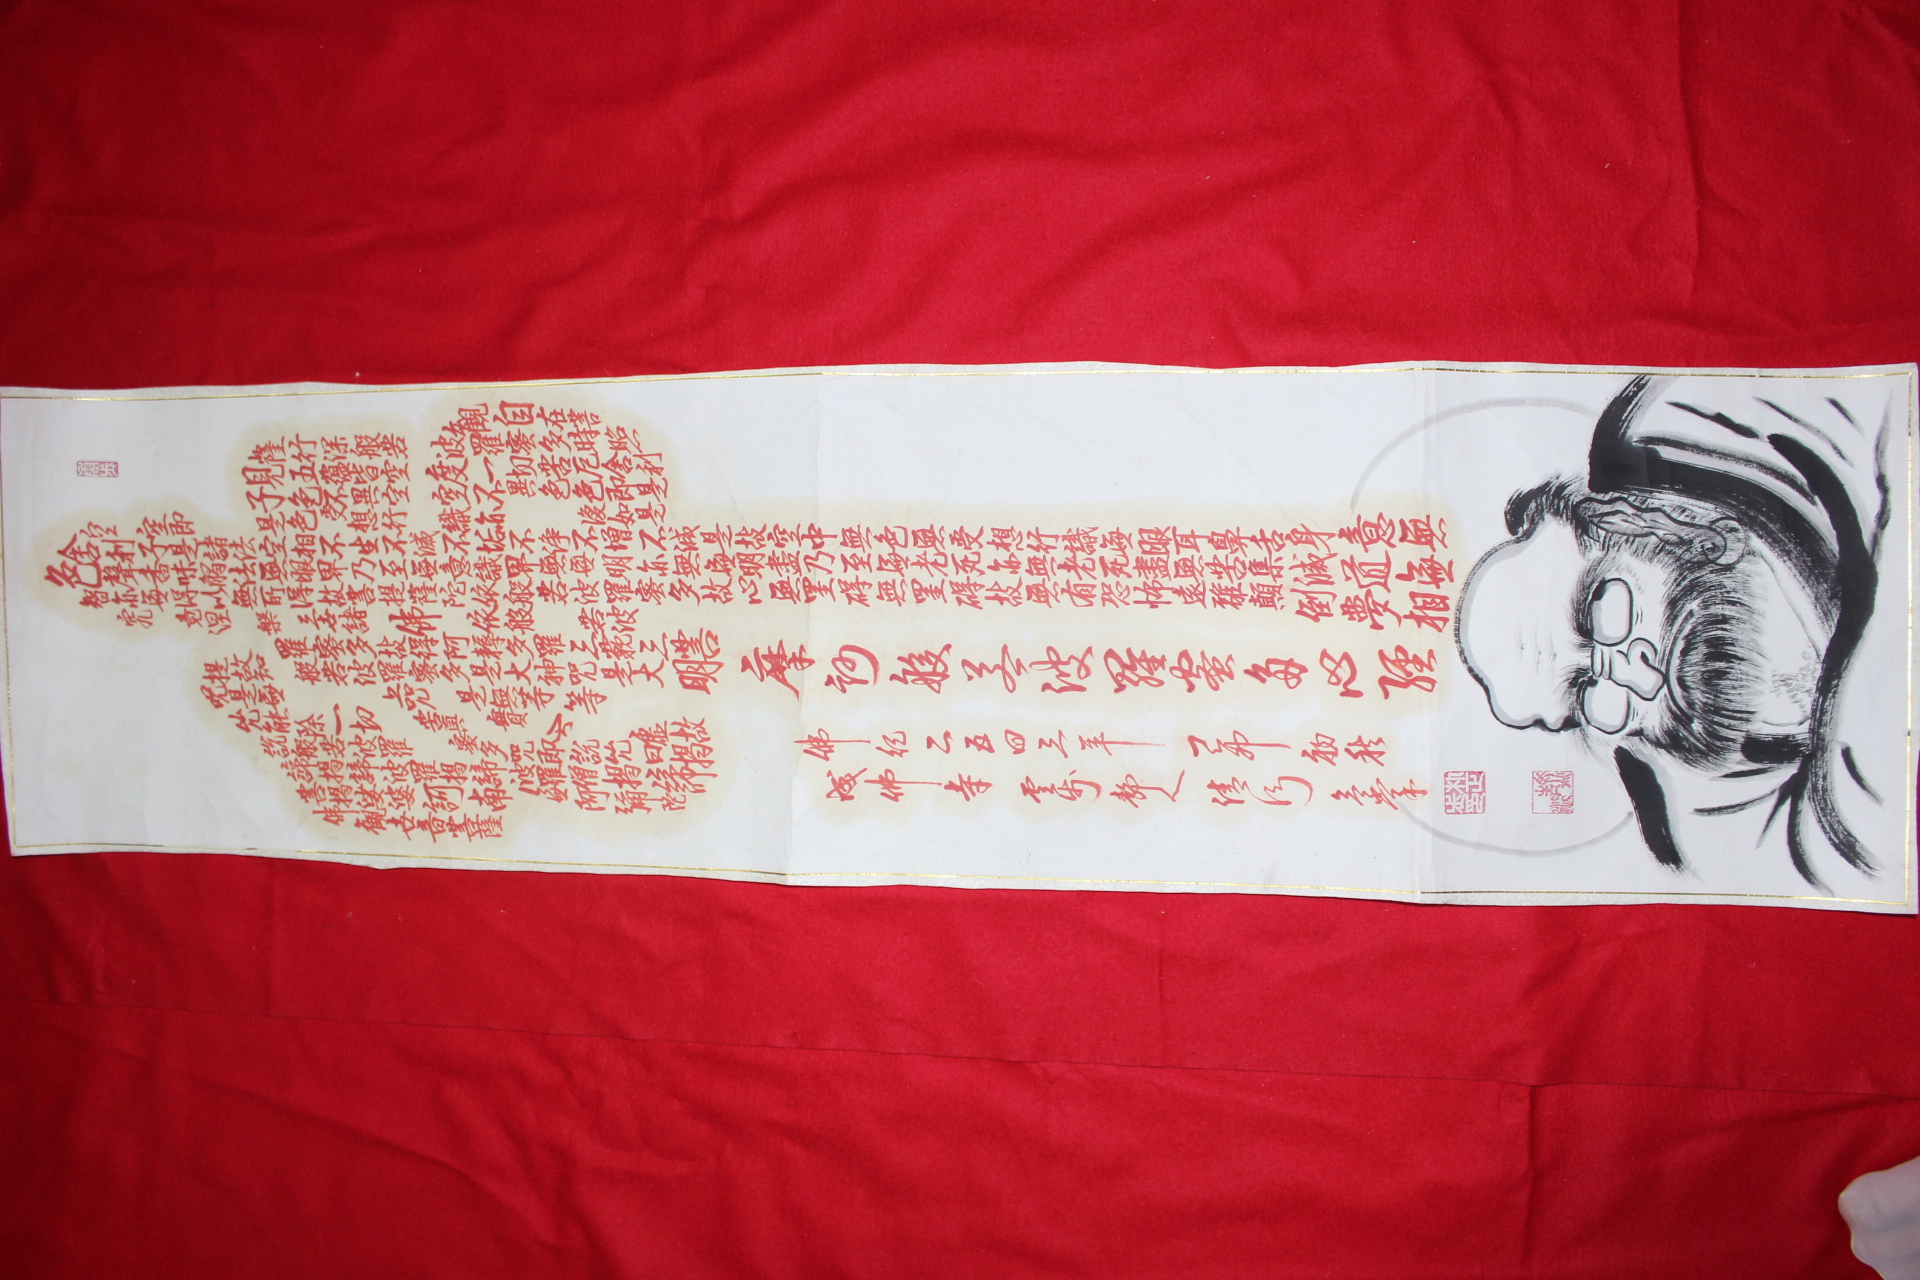 觀自在菩
薩行深般若波羅蜜多時照
見五蘊皆空度一切苦厄舍利
子色不異空空不異色色即是
空空即是色受想行識亦復如是
舍利子是諸法空相不生不滅不垢不淨不增不減是故空中無色無受想行識無眼耳鼻舌身意無
色聲香味觸法無眼界乃至無意識界無無明亦無無明盡乃至無老死亦無老死盡無苦集滅道無
智亦無得以無所得故菩提薩陀依般若波羅蜜多故心無罣碍無罣碍故無有恐怖遠離顛倒夢相
究竟涅槃三世諸佛依般若波
羅蜜多故得阿耨多羅三藐三菩
提故知般若波羅蜜多是大神呪是大明
呪是無上呪是無等等
呪能除一切苦眞實不虛故
說般若波羅蜜多呪即說呪曰揭
諦揭諦波羅揭諦波羅僧揭諦
菩揭娑婆訶南無阿彌陀
佛觀世音菩薩
摩訶般若波羅蜜多心經
佛紀二五四三年丁卯初秋
成佛寺雲